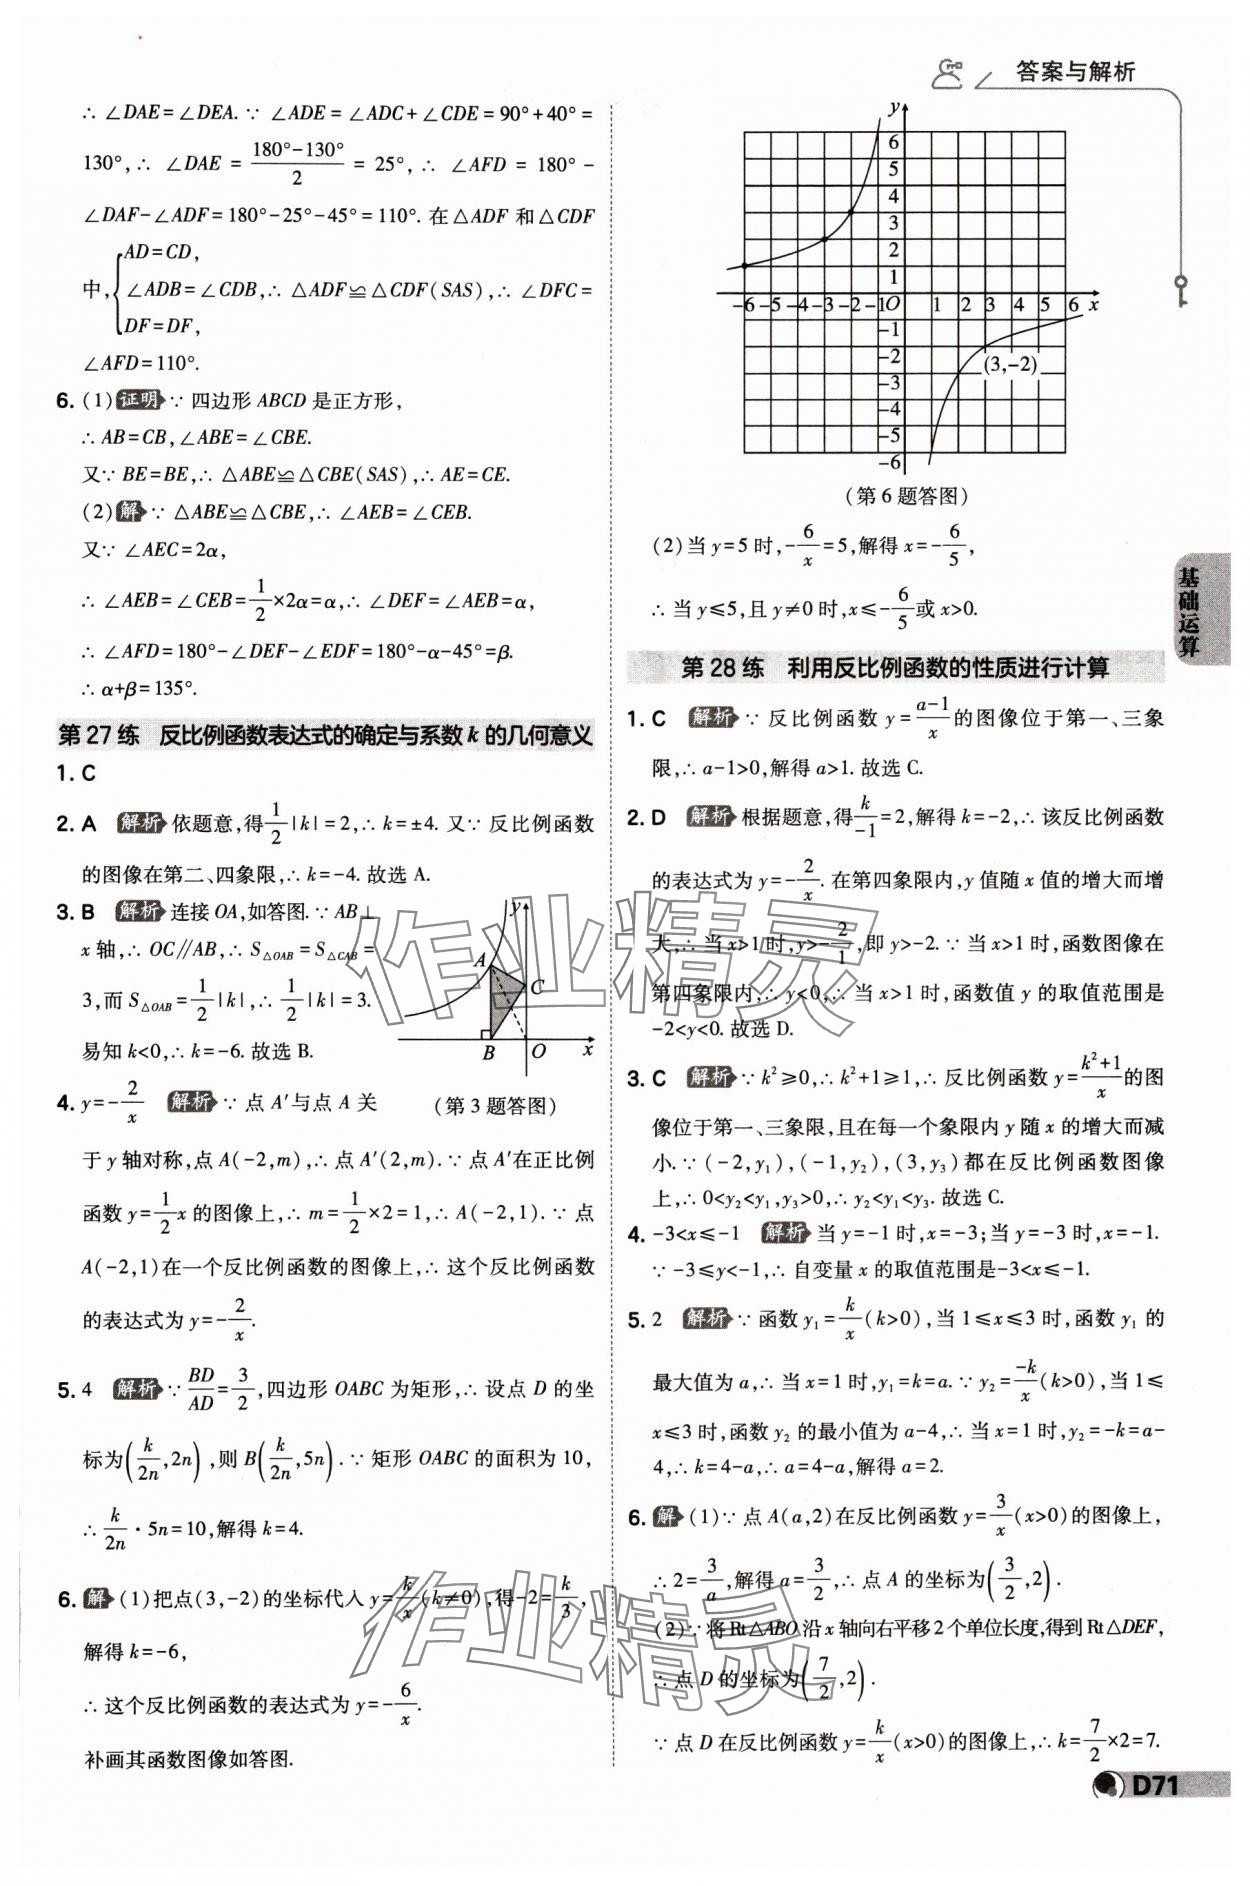 答案与解析
∴ ∠DAE=∠DEA.∵ ∠ADE=∠ADC+∠CDE=90°+40°=
130°,∴ ∠DAE = (180°-130°)/2 = 25°,∴ ∠AFD = 180° -
∠DAF-∠ADF=180°-25°-45°=110°.在△ADF 和△CDF
中,{AD=CD,
∠ADB=∠CDB,∴ △ADF≌△CDF(SAS),∴ ∠DFC=
DF=DF,
∠AFD=110°.
6. (1)证明 ∵ 四边形 ABCD 是正方形,
∴ AB=CB,∠ABE=∠CBE.
又∵ BE=BE,∴ △ABE≌△CBE(SAS),∴ AE=CE.
(2)解 ∵ △ABE≌△CBE,∴ ∠AEB=∠CEB.
又∵ ∠AEC=2α,
∴ ∠AEB=∠CEB=1/2×2α=α,∴ ∠DEF=∠AEB=α,
∴ ∠AFD=180°-∠DEF-∠EDF=180°-α-45°=β.
∴ α+β=135°.
第 27 练 反比例函数表达式的确定与系数 k 的几何意义
1. C
2. A 解析 依题意,得1/2|k|=2,∴ k=±4. 又∵ 反比例函数
的图像在第二、四象限,∴ k=-4. 故选 A.
3. B 解析 连接 OA,如答图.∵ AB⊥
x 轴,∴ OC∥AB,∴ S△OAB=S△CAB=
3,而 S△OAB=1/2|k|,∴ 1/2|k|=3.
易知 k<0,∴ k=-6. 故选 B.
y
A
C
B
O
x
(第 3 题答图)
4. y=-2/x 解析 ∵ 点 A′与点 A 关
于 y 轴对称,点 A(-2,m),∴ 点 A′(2,m).∵ 点 A′在正比例
函数 y=1/2x 的图像上,∴ m=1/2×2=1,∴ A(-2,1).∵ 点
A(-2,1)在一个反比例函数的图像上,∴ 这个反比例函数
的表达式为 y=-2/x.
5. 4 解析 ∵ BD/AD=3/2,四边形 OABC 为矩形,∴ 设点 D 的坐
标为(k/2n,2n),则 B(k/2n,5n).∵ 矩形 OABC 的面积为 10,
∴ k/2n·5n=10,解得 k=4.
6. 解 (1)把点(3,-2)的坐标代入 y=k/x(k≠0),得-2=k/3,
解得 k=-6,
∴ 这个反比例函数的表达式为 y=-6/x.
补画其函数图像如答图.
y
6
5
4
3
2
1
-6 -5 -4 -3 -2 -1 O 1 2 3 4 5 6 x
-1
-2
(3,-2)
-3
-4
-5
-6
(第 6 题答图)
(2)当 y=5 时,-6/x=5,解得 x=-6/5,
∴ 当 y≤5,且 y≠0 时,x≤-6/5或 x>0.
第 28 练 利用反比例函数的性质进行计算
1. C 解析 ∵ 反比例函数 y=(a-1)/x的图像位于第一、三象
限,∴ a-1>0,解得 a>1. 故选 C.
2. D 解析 根据题意,得k/-1=2,解得 k=-2,∴ 该反比例函数
的表达式为 y=-2/x. 在第四象限内,y 值随 x 值的增大而增
大,∴ 当 x>1 时,y>-2/1,即 y>-2.∵ 当 x>1 时,函数图像在
第四象限内,∴ y<0,∴ 当 x>1 时,函数值 y 的取值范围是
-2<y<0. 故选 D.
3. C 解析 ∵ k²≥0,∴ k²+1≥1,∴ 反比例函数 y=(k²+1)/x的图
像位于第一、三象限,且在每一个象限内 y 随 x 的增大而减
小.∵ (-2,y₁),(-1,y₂),(3,y₃)都在反比例函数图像
上,∴ 0<y₂<y₁,y₃>0,∴ y₂<y₁<y₃. 故选 C.
4. -3<x≤-1 解析 当 y=-1 时,x=-3;当 y=-3 时,x=-1.
∵ -3≤y<-1,∴ 自变量 x 的取值范围是-3<x≤-1.
5. 2 解析 ∵ 函数 y₁=k/x(k>0),当 1≤x≤3 时,函数 y₁ 的
最大值为 a,∴ 当 x=1 时,y₁=k=a.∵ y₂=-k/x(k>0),当 1≤
x≤3 时,函数 y₂ 的最小值为 a-4,∴ 当 x=1 时,y₂=-k=a-
4,∴ k=4-a,∴ a=4-a,解得 a=2.
6. 解 (1)∵ 点 A(a,2)在反比例函数 y=3/x(x>0)的图像上,
∴ 2=3/a,解得 a=3/2,∴ 点 A 的坐标为(3/2,2).
(2)∵ 将 Rt△ABO 沿 x 轴向右平移 2 个单位长度,得到 Rt△DEF,
∴ 点 D 的坐标为(7/2,2).
∵ 点 D 在反比例函数 y=k/x(x>0)的图像上,∴ k=7/2×2=7.
基础运算
D71
作业精灵
作业精灵